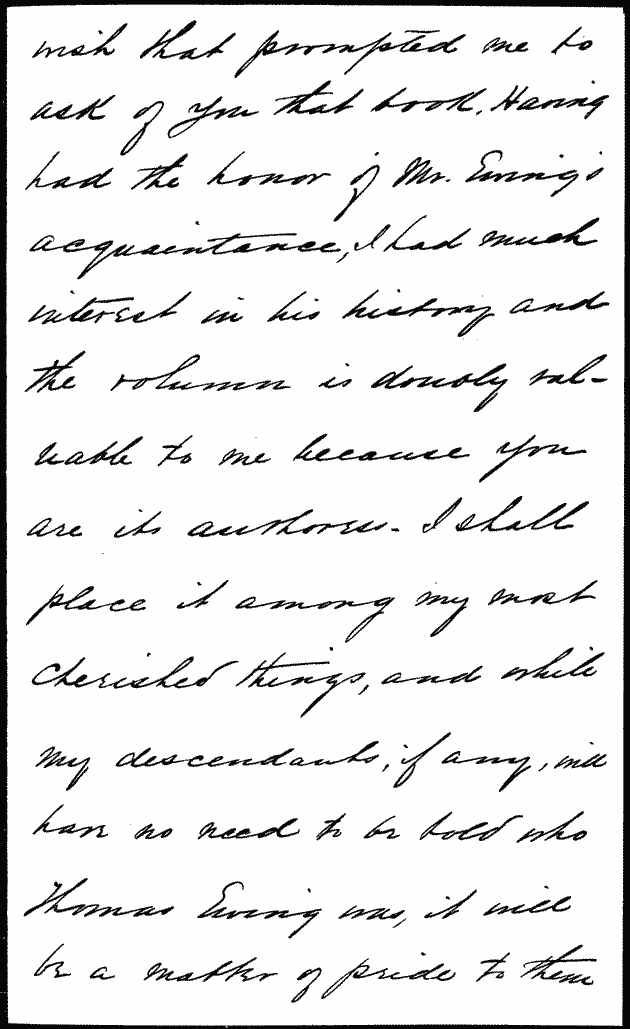 wish that prompted me to
ask of you that book. Having
had the honor of Mr. Ewing's
acquaintance, I had much
interest in his history and
the volumn is doubly val-
uable to me because you
are its authoress - I shall
place it among my most
cherished things, and while
my descendants, if any, will
have no need to be told who
Thomas Ewing was, it will
be a matter of pride to them